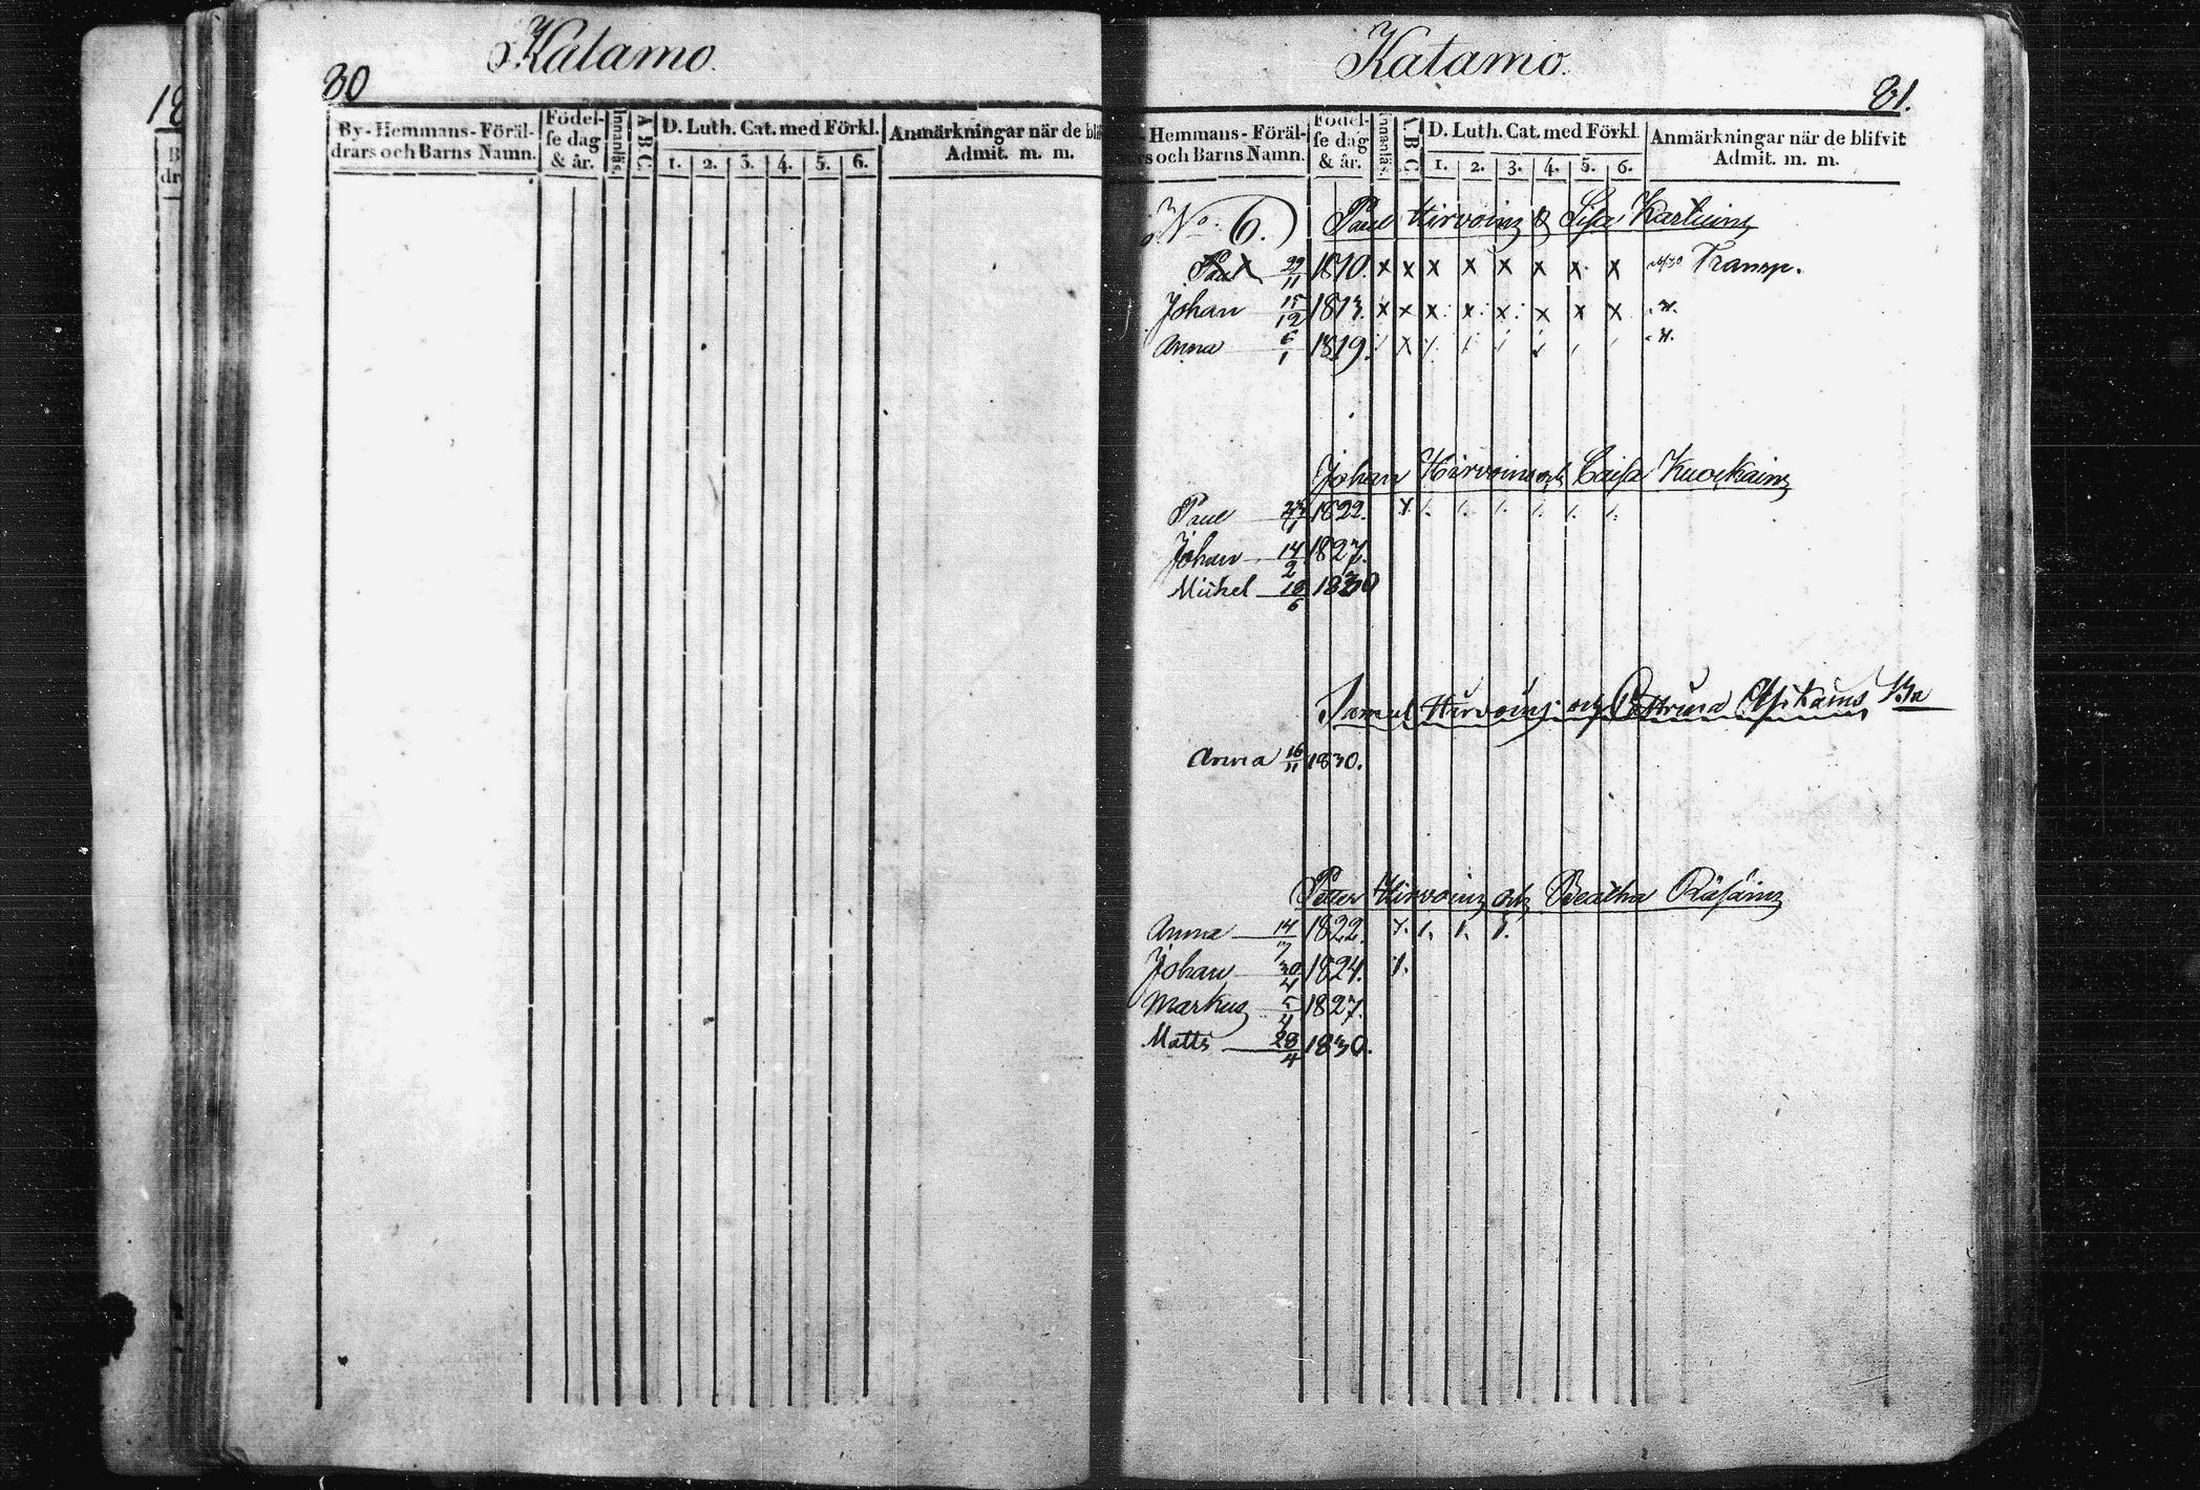 80
Katamo.
By-Hemmans-Föräl-
drars och Barns Namn.
Födel-
se dag
& år.
Innanläs.
A B C.
D. Luth. Cat. med Förkl.
1. 2. 3. 4. 5. 6.
Anmärkningar när de
Admit. m. m.
18
B
dr
Katamo.
81.
Hemmans-Föräl-
och Barns Namn.
Födel-
se dag
& år.
Innanläs.
A B C
D. Luth. Cat. med Förkl.
1. 2. 3. 4. 5. 6.
Anmärkningar när de blifvit
Admit. m. m.
No. 6.) Paul Hirvoinz & Lisa
Paul 29/11 1810. x x x x x x x x Transp.
Johan 15/12 1813. x x x x x x x x
Anna 6/1 1819.
Johan Hirvoin och Caisa
Paul 1822.
Johan 14/2 1827.
Michel 18/6 1830
Samul Hirvoinz och
Anna 16/11 1830.
Petter Hirvoinz och Beatha Räsäinz
Anna 14/7 1822.
Johan 30/4 1824.
Markus 5/4 1827.
Matts 28/4 1830.